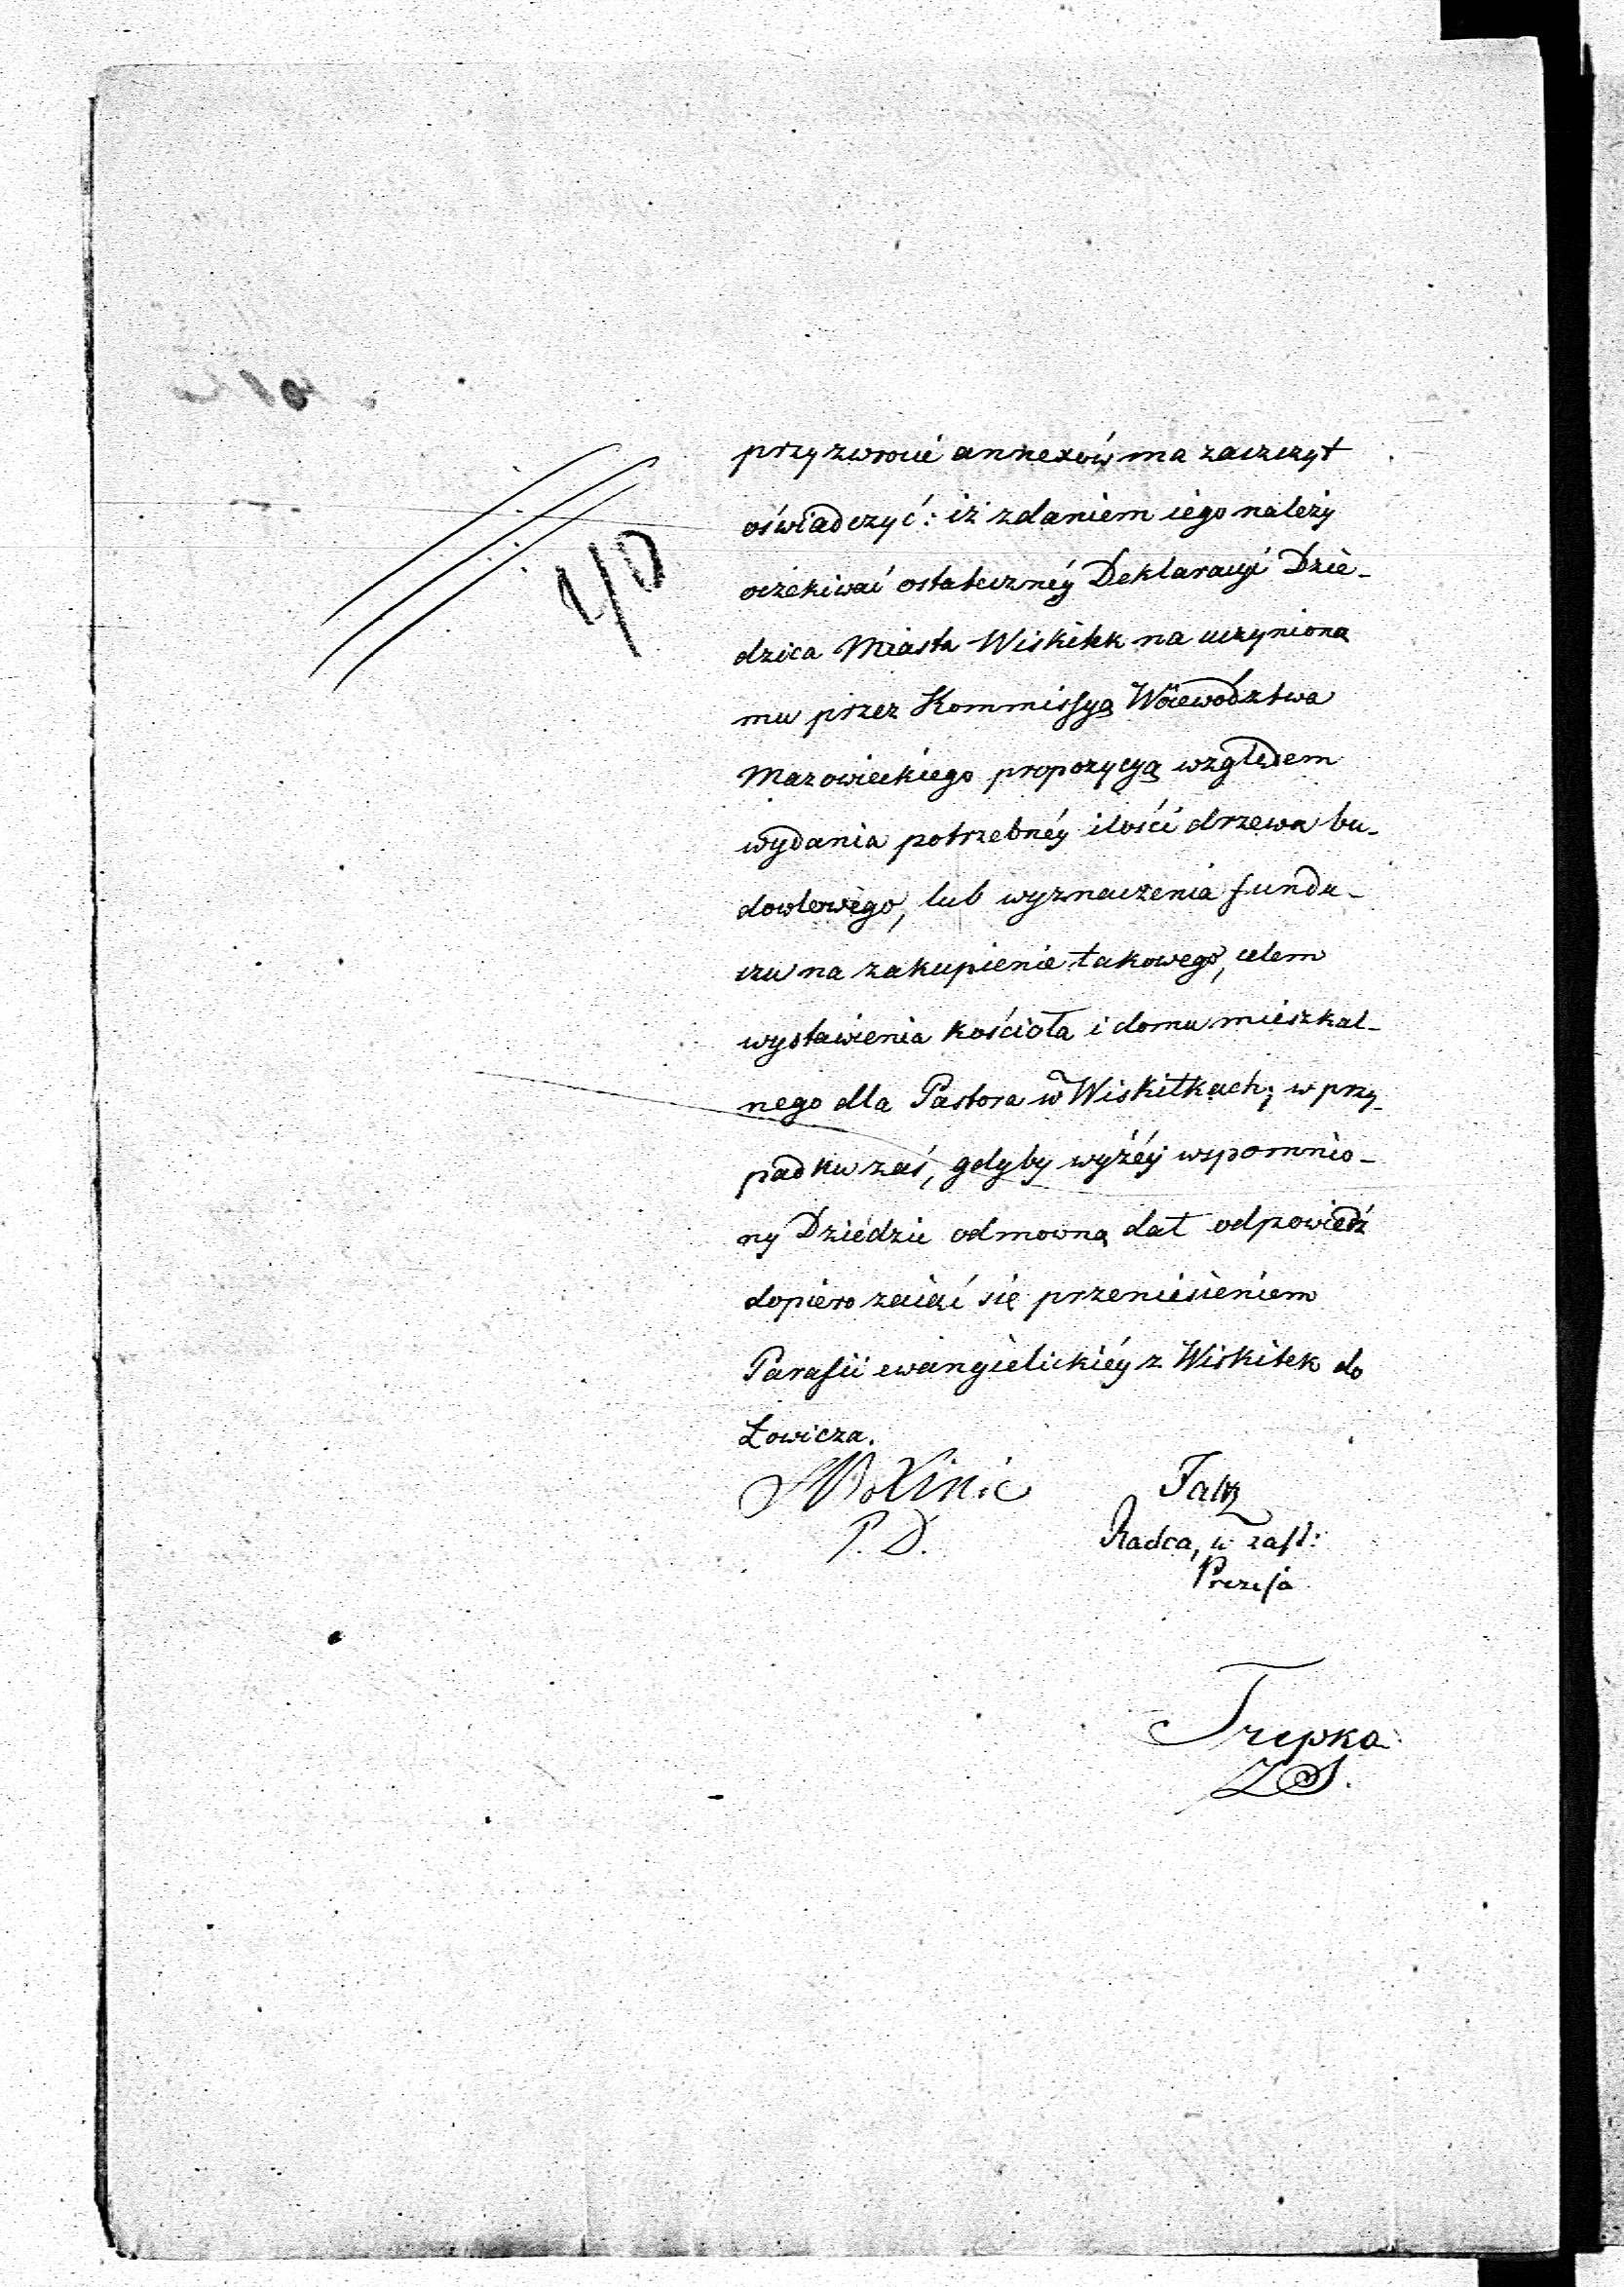 przy zwrocie annexów ma zaszczyt
oświadczyć: iż zdaniem iego należy
oczekiwać ostateczney Deklaracyi Dzie-
dzica Miasta Wiskitek na uczynioną
mu przez Kommissyą Woiewodztwa
Mazowieckiego propozycyą względem
wydania potrzebney ilości drzewa bu-
dowlowego, lub wyznaczenia fundu-
szu na zakupienie takowego, celem
wystawienia kościoła i domu mieszkal-
nego dla Pastora w Wiskitkach; w przy-
padku zaś, gdyby wyżey wspomnio-
ny Dziedzic odmowną dał odpowiedź
dopiero zaiąć się przeniesieniem
Parafii ewangielickiey z Wiskitek do
Łowicza.
P. D.
Radca, w zast:
Prezesa
Trepka